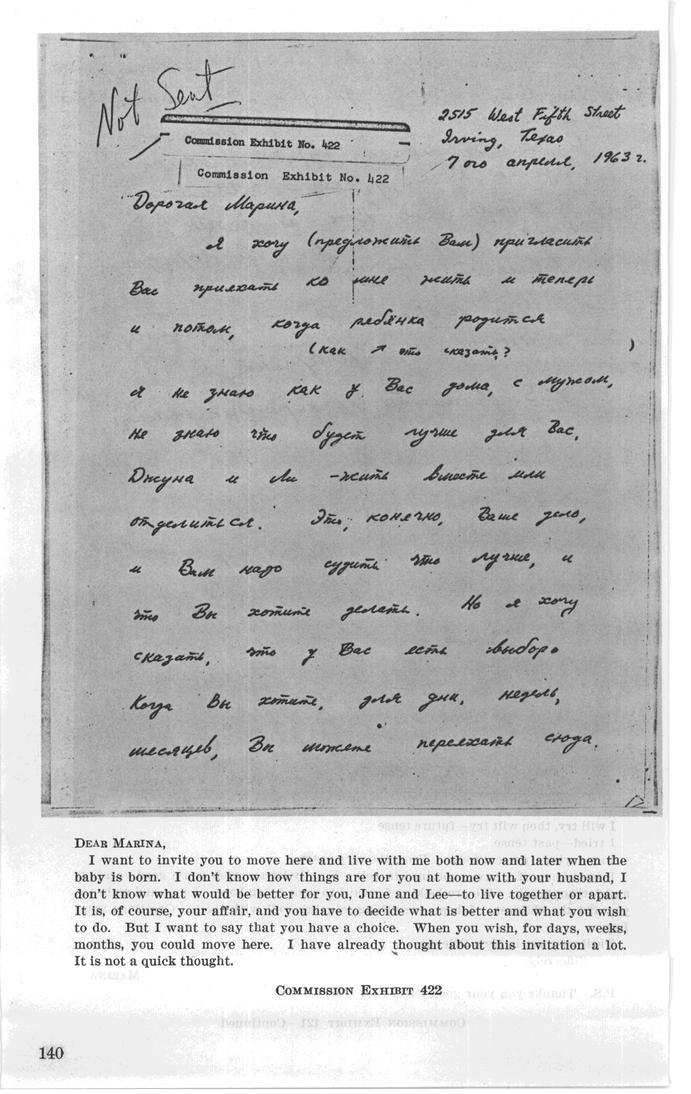 Not Sent
Commission Exhibit No. 422
Commission Exhibit No. 422
2515 West Fifth Street
Irving, Texas
7ого апреля, 1963 г.
Дорогая Марина,
Я хочу (предложить Вам) пригласить
Вас приехать ко мне жить и теперь
и потом, когда ребёнка родится
(как это сказать? )
Я не знаю как у Вас дома, с мужом,
Не знаю что будет лучше для Вас,
Джуна и Ли -жить вместе или
отделиться. Это, конечно, Ваше дело,
и Вам надо судить что лучше, и
что Вы хотите делать. Но я хочу
сказать, что у Вас есть выбор.
Когда Вы хотите, для дни, недель,
месяцев, Вы можете переехать сюда.
DEAR MARINA,
I want to invite you to move here and live with me both now and later when the
baby is born. I don't know how things are for you at home with your husband, I
don't know what would be better for you, June and Lee—to live together or apart.
It is, of course, your affair, and you have to decide what is better and what you wish
to do. But I want to say that you have a choice. When you wish, for days, weeks,
months, you could move here. I have already thought about this invitation a lot.
It is not a quick thought.
COMMISSION EXHIBIT 422
140